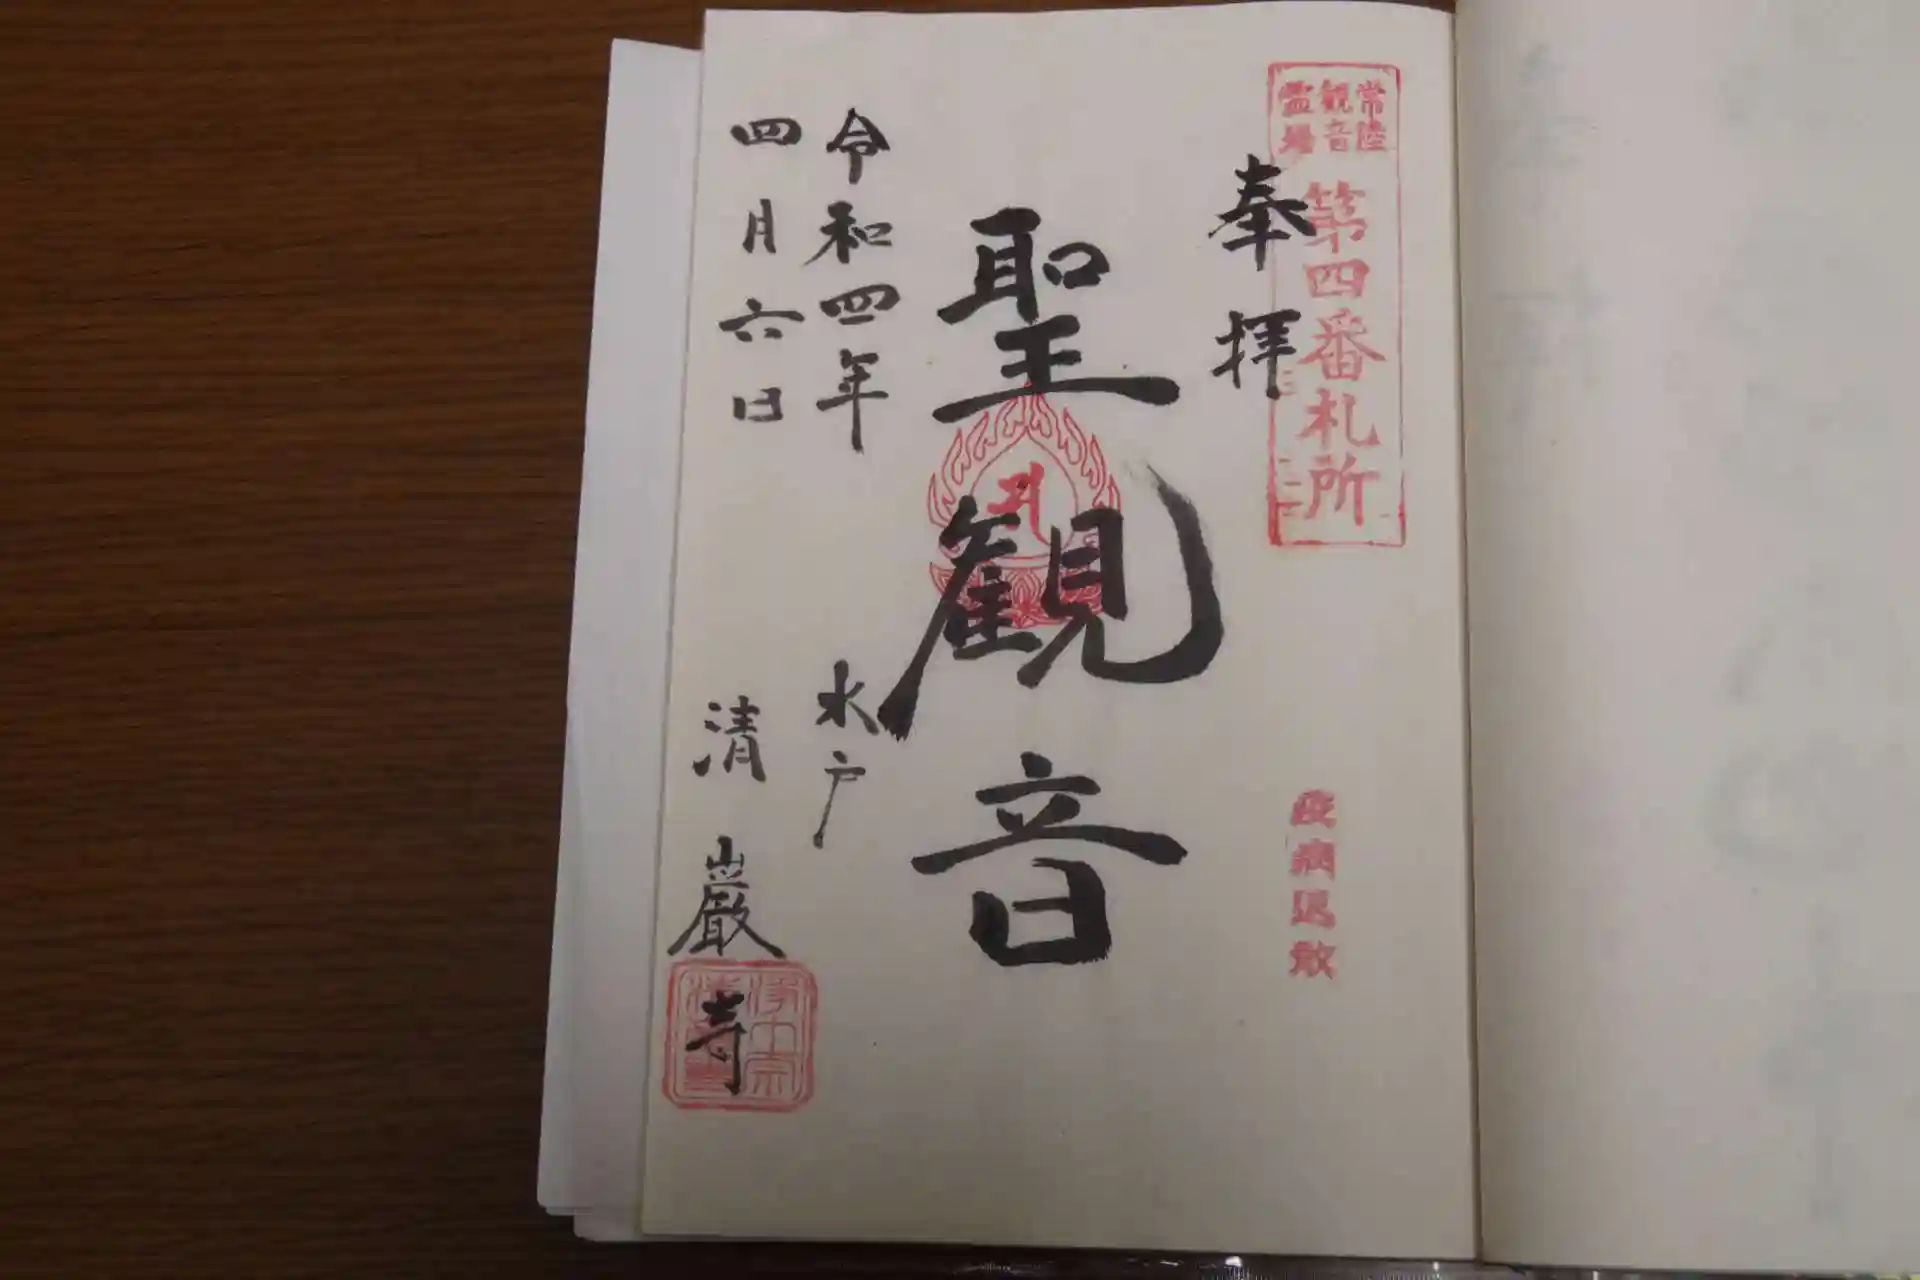 常陸
観音
霊場
第四番札所
奉拝
疫病退散
聖観音
令和四年
水戸
四月六日
清巖寺
浄土宗